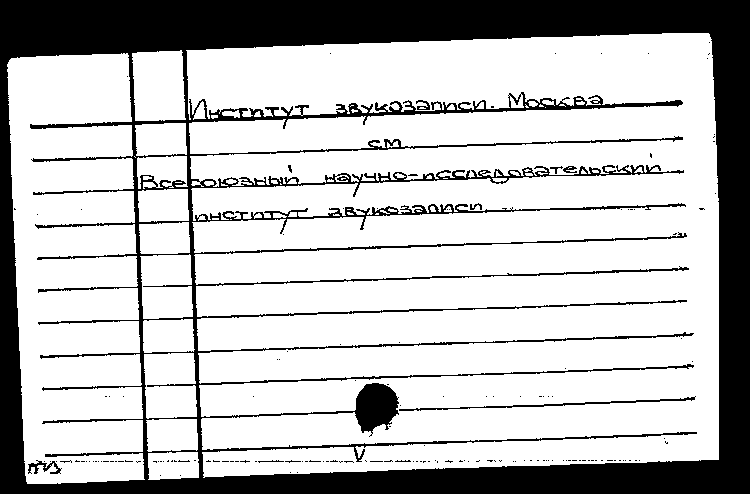 Институт звукозаписи. Москва
см
Всесоюзный научно-исследовательский
институт звукозаписи.
V